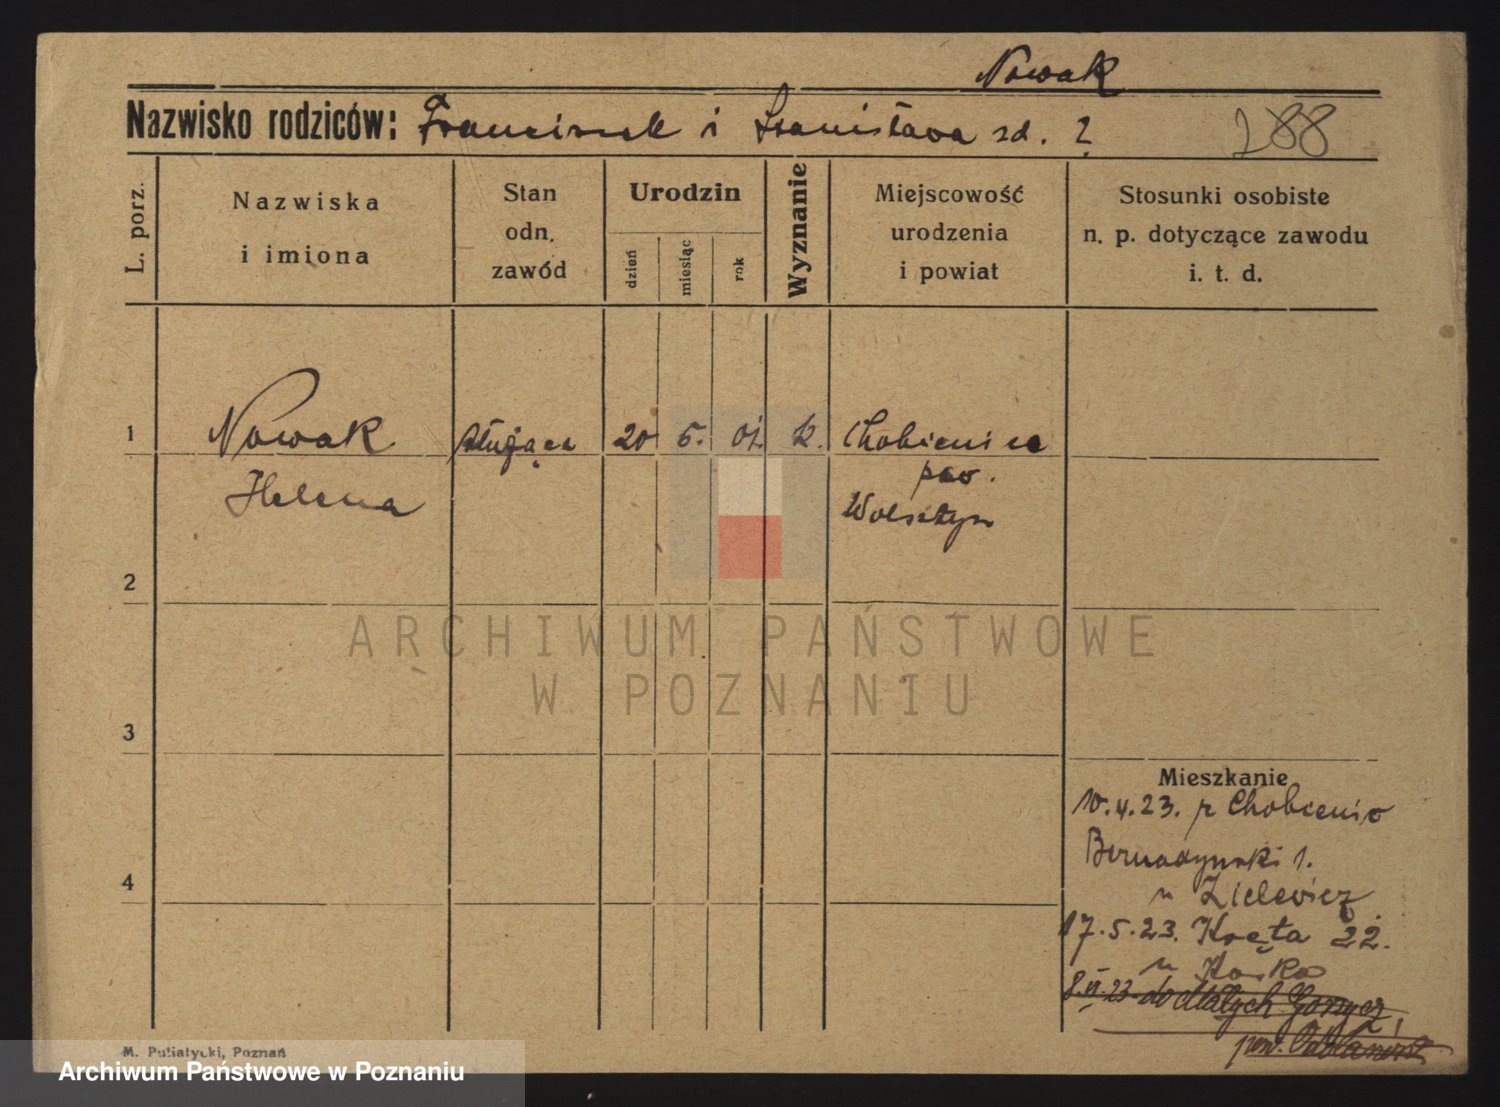 Nowak
Nazwisko rodziców: Franciszek i Stanisława zd. ?
288
L. porz.
Nazwiska
i imiona
Stan
odn.
zawód
Urodzin
dzień
miesiąc
rok
Wyznanie
Miejscowość
urodzenia
i powiat
Stosunki osobiste
n. p. dotyczące zawodu
i. t. d.
1 Nowak służąca 20 5. 01. k. Chobienice
Helena
pow.
Wolsztyn
2
ARCHIWUM PAŃSTWOWE
W POZNANIU
3
Mieszkanie
10.4.23. z Chobienic
Bernadyński 1.
u Zielewicz
4
17.5.23. Kręta 22.
u
8.VI.23 do Małych Gorzyc
pow. Odolanów
M. Putiatycki, Poznań
Archiwum Państwowe w Poznaniu